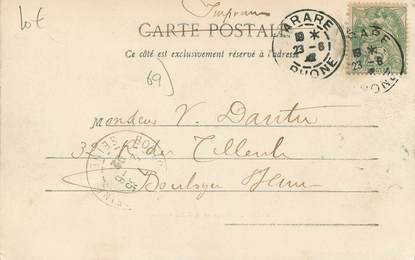 Lot
Imprimé
CARTE POSTALE
Ce côté est exclusivement réservé à l'adresse
TARARE
23 -6
RHONE
69)
Monsieur V. Dantu
32 R des Tilleuls
Boulogne Seine